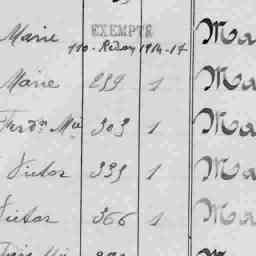 Marie EXEMPTÉ Ma
110 - Redon 1914-17
Marie 259 1 Ma
Ferd.n Mie 303 1 Ma
Victor 339 1 Ma
Victor 366 1 Ma